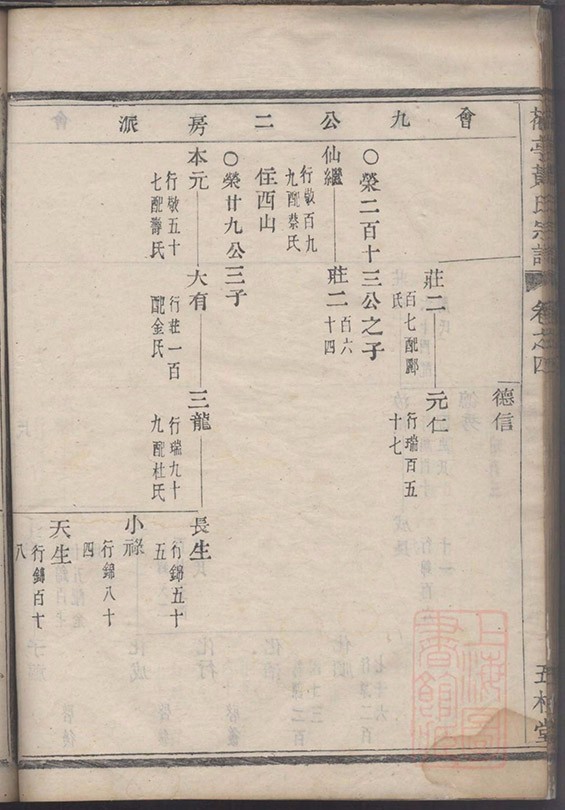 黃氏宗譜 卷之四
五桂堂
會九公二房派
德信
莊二 百七配酈氏
元仁 行瑞百五十七
○榮二百十三公之子
仙繼 行敬百九九配蔡氏
莊二 百六十四
住西山
○榮廿九公三子
本元 行敬五十七配壽氏
大有 行莊一百配金氏
三龍 行瑞九十九配杜氏
長生 行錦五十五
小祿 行錦八十四
天生 行錦百十八
上海圖書館藏